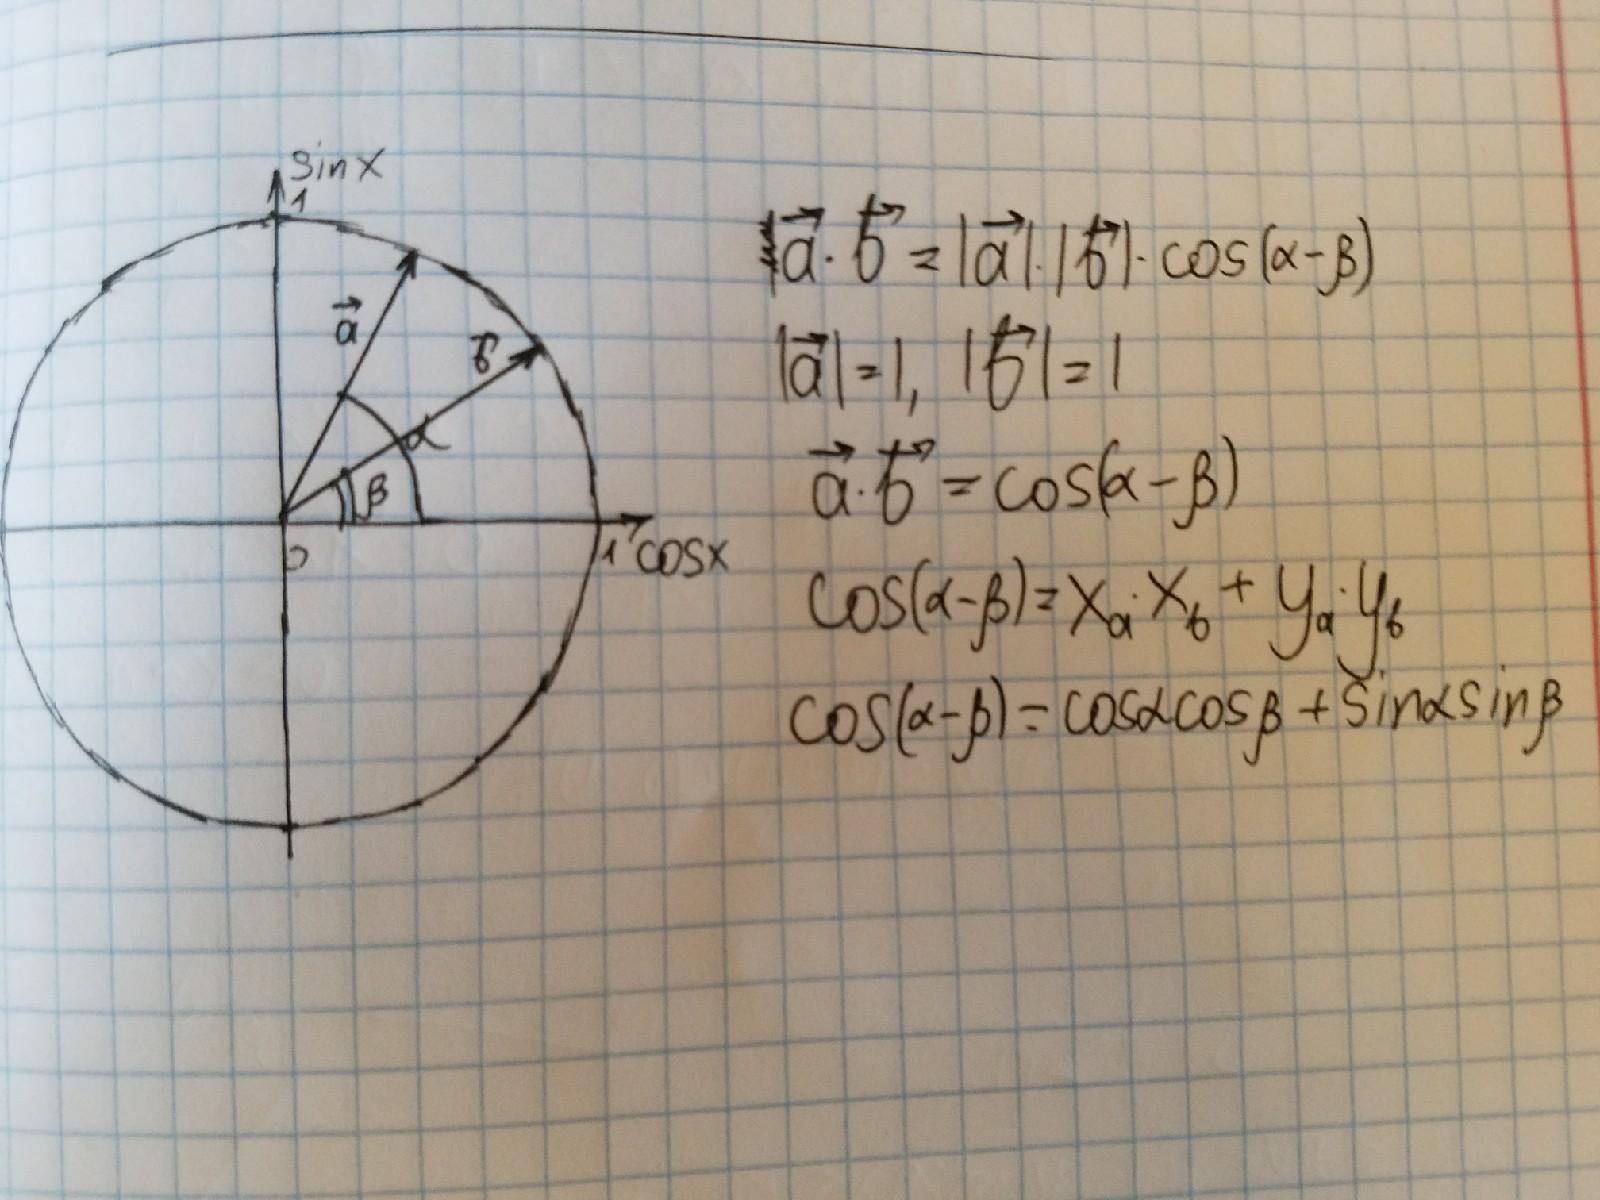 sin x
1
a⃗
b⃗
α
β
0
1 cos x
a⃗ · b⃗ = |a⃗| · |b⃗| · cos(α-β)
|a⃗| = 1, |b⃗| = 1
a⃗ · b⃗ = cos(α-β)
cos(α-β) = xₐ · x_b + yₐ · y_b
cos(α-β) = cosαcosβ + sinαsinβ